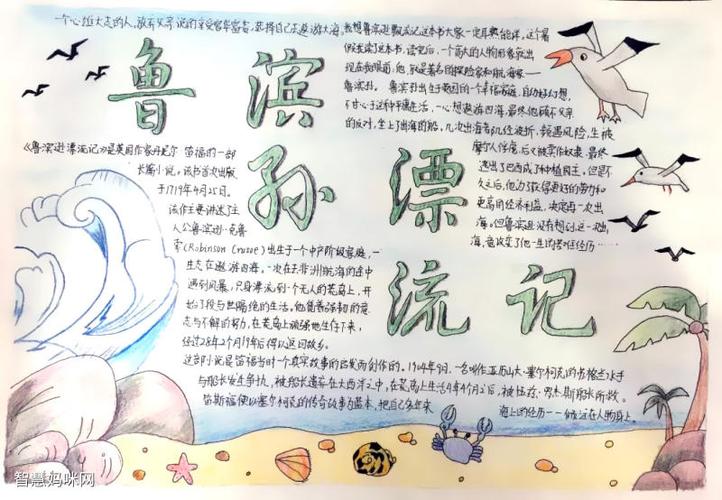 一个心雄大志的人,放弃父亲说的享受富华富贵,选择自己去遨游大海,我想鲁滨逊飘流记这本书大家一定耳熟能详,这个暑
假我读了这本书,读完后,一个高大的人物形象就出
现在我眼前,他,就是著名的探险家和航海家——
鲁滨逊。鲁滨逊出生于英国的一个幸福家庭,自幼好幻想,
不甘心于这种平庸生活,一心想遨游四海,最终他顾不父亲
的反对,坐上了出海的船。几次出海者几经波折,频遇风险,生被
摩尔人俘虏,后又被卖作奴隶,最终
逃出了巴西成了种植园主。但是不
久之后,他为了获得更好的劳力和
更高的经济利益,决定再一次出
海。但鲁滨逊没有想到,这一次出
海,竟改变了他一生的思想经历……
鲁滨
孙漂
流记
《鲁滨逊漂流记》是英国作家丹尼尔·笛福的一部
长篇小说。该书首次出版
于1719年4月25日。
该作主要讲述了主
人公鲁滨逊·克鲁
索(Robinson Crusoe)出生于一个中产阶级家庭,一
生志在遨游四海。一次在去非洲航海的途中
遇到风暴,只身漂流到一个无人的荒岛上,开
始了段与世隔绝的生活。他凭着强韧的意
志与不懈的努力,在荒岛上顽强地生存下来,
经过28年2个月19天后得以返回故乡。
这部小说是笛福当时一个真实故事的启发而创作的。1704年9月,一名叫作亚历山大·塞尔柯克的苏格兰水手
与船长发生争执,被船长遗弃在大西洋之中,在荒岛上生活4年4个月之后,被伍兹·罗杰斯船长所救。
笛斯福便以塞尔柯克的传奇故事为蓝本,把自己多年来 海上的经历——倾注在人物身上。
智慧妈咪网